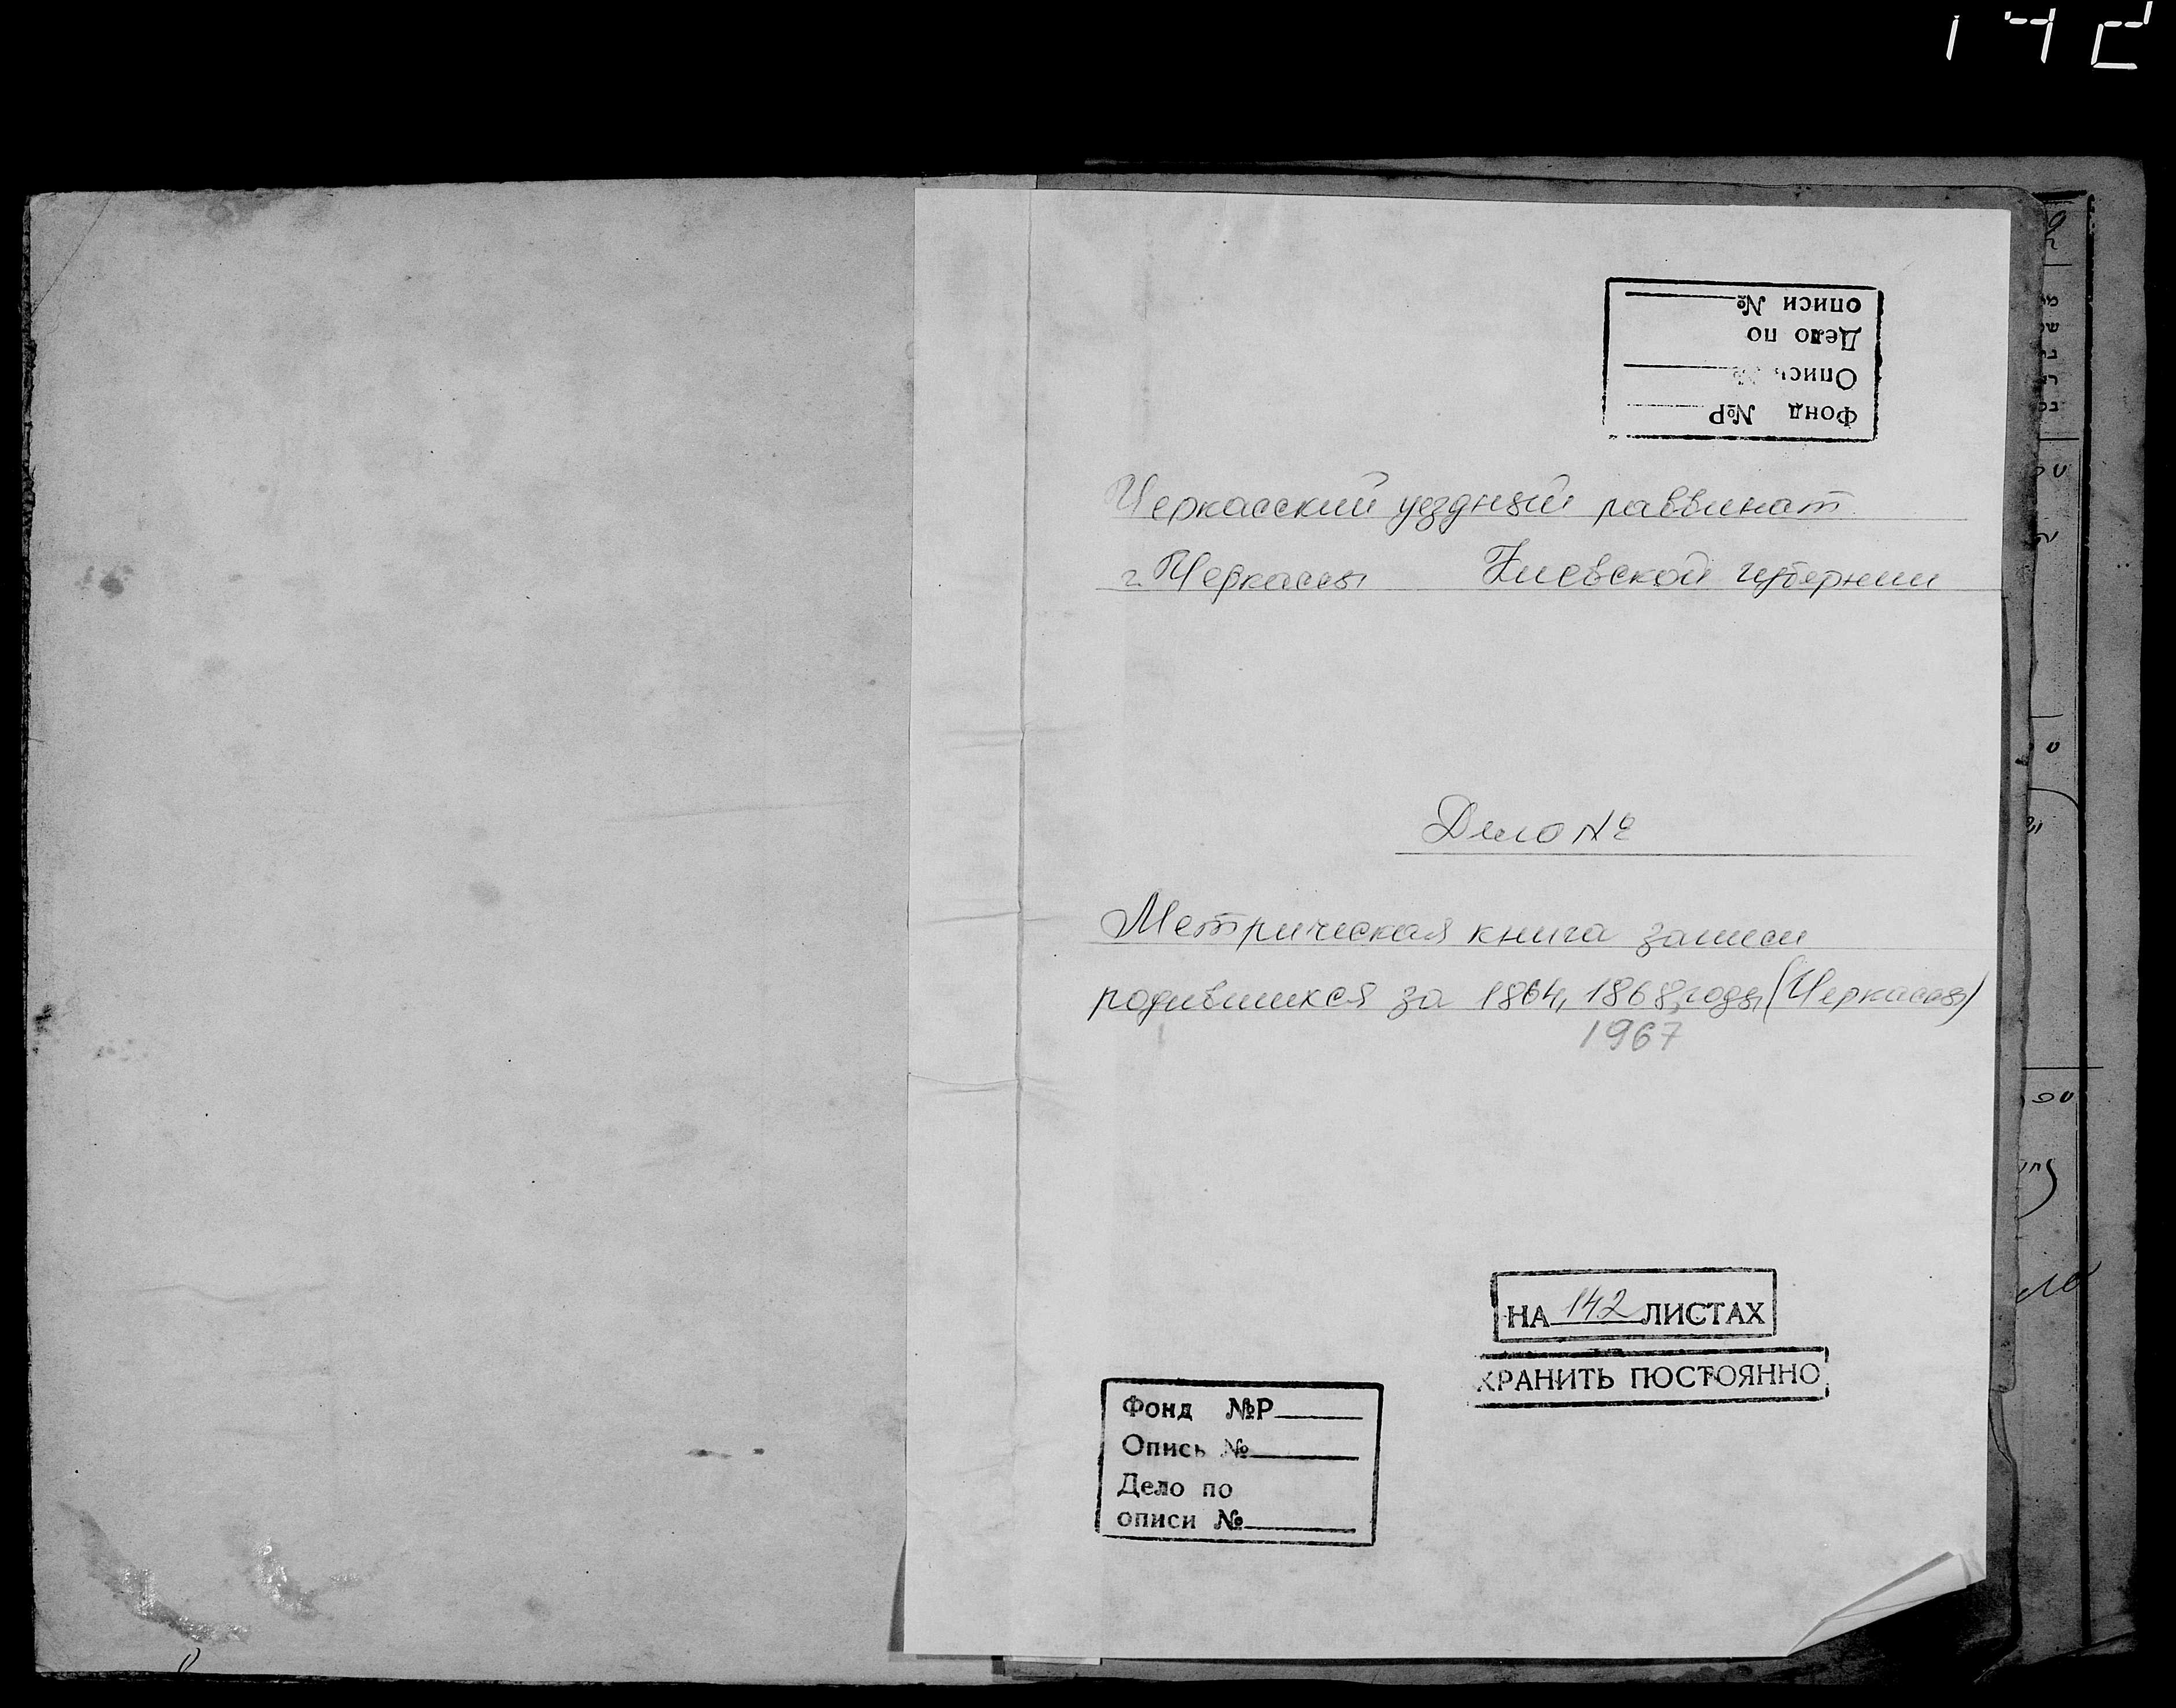 142
описи №
Дело по
Опись №
Фонд №Р
Черкасский уездный раввинат
г. Черкассы Киевской губернии
Дело №
Метрическая книга записи
родившихся за 1864, 1868, годы (Черкассы)
1967
НА 142 ЛИСТАХ
ХРАНИТЬ ПОСТОЯННО
Фонд №Р
Опись №
Дело по
описи №